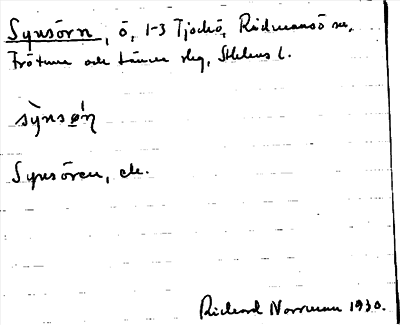 Synsörn, ö, 1-3 Tjockö, Rådmansö sn,
Frötuna och Länna slg, Sthlms l.
sỳnsǿ̱n
Synsören, ek.
Rickard Norrman 1930.